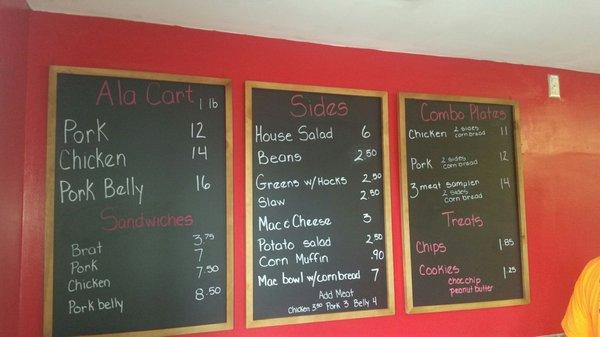 Ala Cart 1 lb
Pork 12
Chicken 14
Pork Belly 16
Sandwiches
Brat 3.75
Pork 7
Chicken 7.50
Pork belly 8.50
Sides
House Salad 6
Beans 2.50
Greens w/Hocks 2.50
Slaw 2.50
Mac & Cheese 3
Potato salad 2.50
Corn Muffin .90
Mac bowl w/cornbread 7
Add Meat
Chicken 3.50 Pork 3 Belly 4
Combo Plates
Chicken 2 sides corn bread 11
Pork 2 sides corn bread 12
3 meat sampler 14
2 sides
corn bread
Treats
Chips 1.85
Cookies 1.25
choc chip
peanut butter